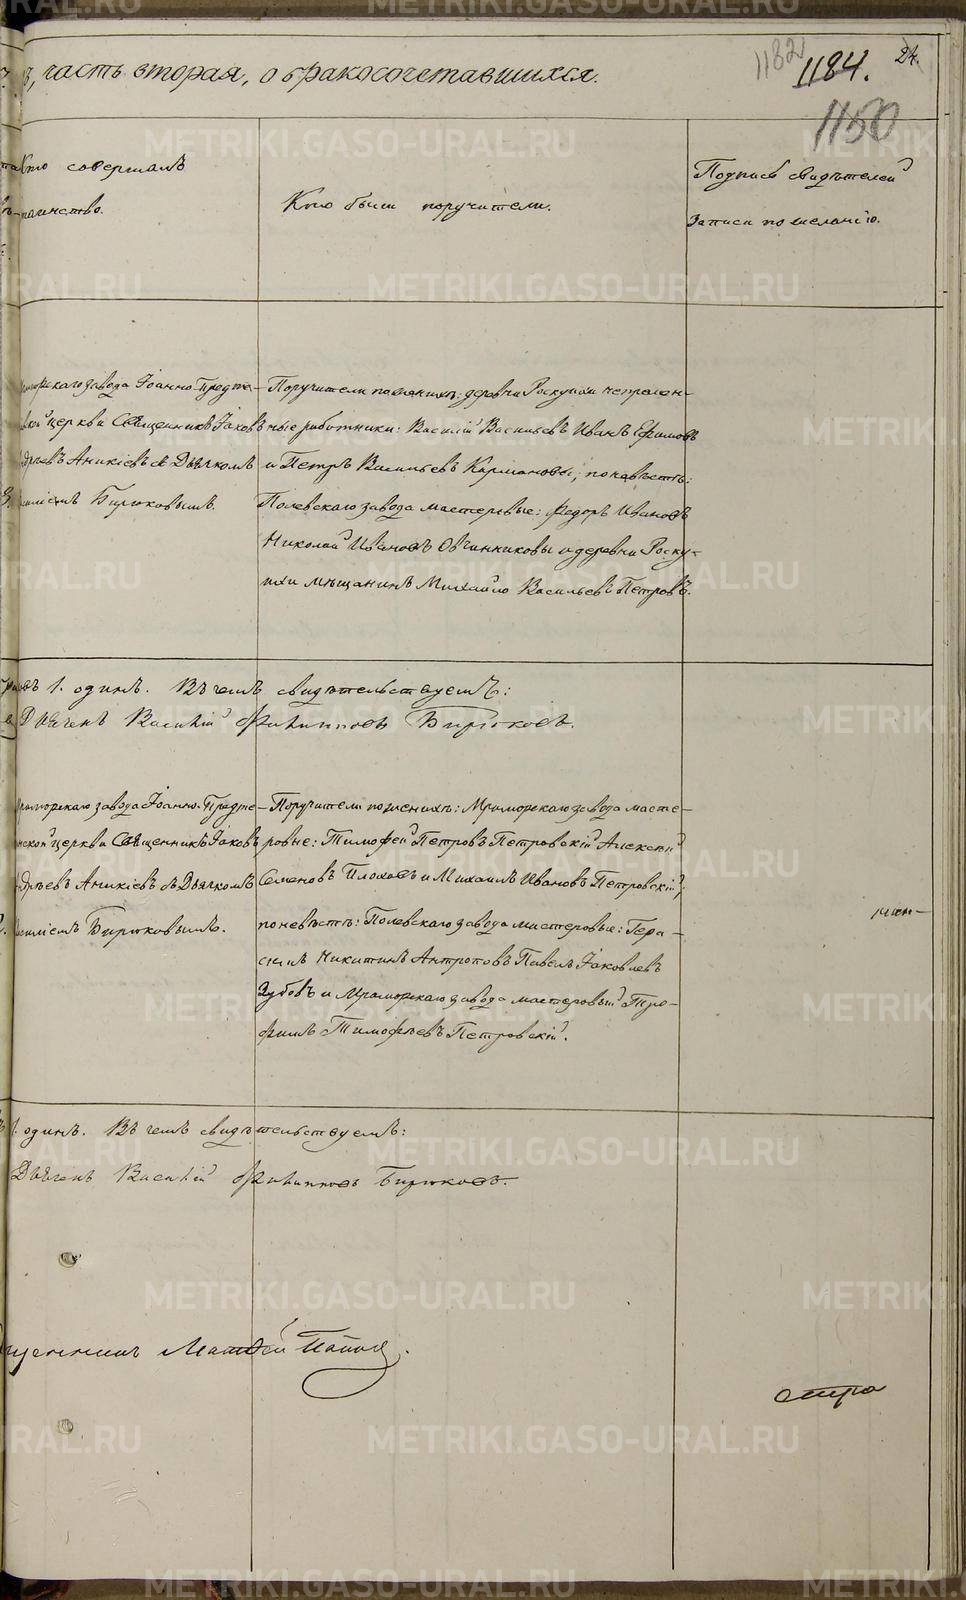 ъ, часть вторая, о бракосочетавшихся.
1182 1184. 24.
1150
Кто совершалъ
таинство.
Кто были поручители.
Подпись свидѣтелей
записи по желанію.
морскаго завода Іоанно-Предте-
ской церкви Священникъ Іаковъ
Аникіевъ съ Дьячкомъ
Бирюковымъ.
Поручители по женихѣ: деревни Роскухи непремен-
ные работники: Василій Васильевъ Иванъ Ефимовъ
и Петръ Васильевъ Кармановы; по невѣстѣ:
Полевскаго завода мастеровые: Федоръ Ивановъ
Николай Ивановъ Овчинниковы и деревни Роску-
хи мѣщанинъ Михайло Васильевъ Петровъ.
1. одинъ. Въ чемъ свидѣтельствуемъ:
Дьячекъ Василій Филипповъ Бирюковъ.
Мраморскаго завода Іоанно-Предте-
нской церкви Священникъ Іаковъ
Аникіевъ съ Дьячкомъ
Бирюковымъ.
Поручители по женихѣ: Мраморскаго завода масте-
ровые: Тимофей Петровъ Петровскій Алексѣй
Семеновъ Плоховъ и Михаилъ Ивановъ Петровскій;
по невѣстѣ: Полевскаго завода мастеровые: Гера-
симъ Никитинъ Антроповъ Павелъ Яковлевъ
Зубовъ и Мраморскаго завода мастеровый Тро-
фимъ Тимофѣевъ Петровскій.
1. одинъ. Въ чемъ свидѣтельствуемъ:
Дьячекъ Василій Филипповъ Бирюковъ.
Матѳей Поповъ.
METRIKI.GASO-URAL.RU